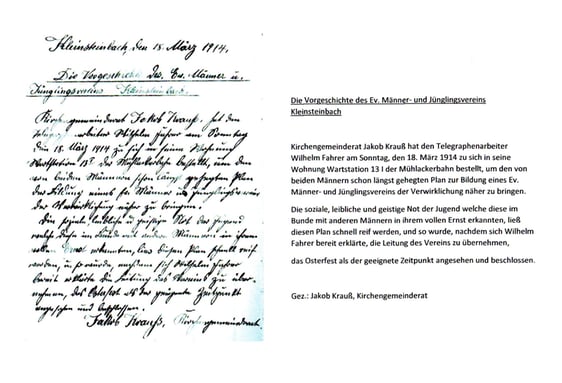 Kleinsteinbach, den 18. März 1914.
Die Vorgeschichte des Ev. Männer u.
Jünglingsvereins Kleinsteinbach.
Kirchengemeinderat Jakob Krauß hat den
arbeiter Wilhelm Fahrer am Sonntag
den 18. März 1914 zu sich in seine Wohnung
Wartstation 13 I der Mühlackerbahn bestellt, um den
von beiden Männern schon längst gehegten Plan
zur Bildung eines Ev. Männer u. Jünglingsverein
der Verwirklichung näher zu bringen.
Die soziale leibliche u. geistige Not der Jugend
welche diese im Bunde mit andern Männern in ihrem
vollen Ernst erkannten, lies diesen Plan schnell reif
werden, u. so wurde, nachdem sich Wilhelm Fahrer
bereit erklärte die Leitung des Vereins zu über-
nehmen, das Osterfest als der geeignete Zeitpunkt
angesehen und beschlossen.
Jakob Krauß, Kirchengemeinderat.
Die Vorgeschichte des Ev. Männer- und Jünglingsvereins
Kleinsteinbach
Kirchengemeinderat Jakob Krauß hat den Telegraphenarbeiter
Wilhelm Fahrer am Sonntag, den 18. März 1914 zu sich in seine
Wohnung Wartstation 13 I der Mühlackerbahn bestellt, um den von
beiden Männern schon längst gehegten Plan zur Bildung eines Ev.
Männer- und Jünglingsvereins der Verwirklichung näher zu bringen.
Die soziale, leibliche und geistige Not der Jugend welche diese im
Bunde mit anderen Männern in ihrem vollen Ernst erkannten, ließ
diesen Plan schnell reif werden, und so wurde, nachdem sich Wilhelm
Fahrer bereit erklärte, die Leitung des Vereins zu übernehmen,
das Osterfest als der geeignete Zeitpunkt angesehen und beschlossen.
Gez.: Jakob Krauß, Kirchengemeinderat